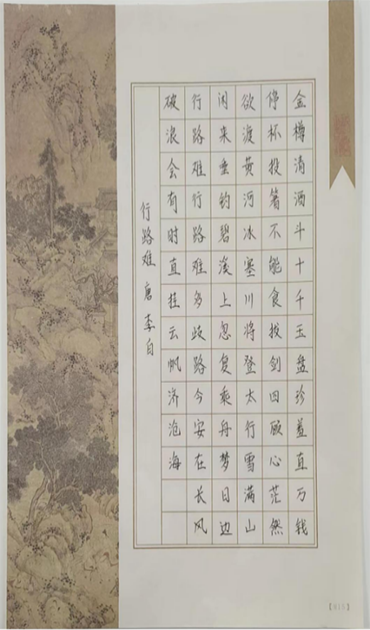 金樽清酒斗十千玉盘珍羞直万钱
停杯投箸不能食拔剑四顾心茫然
欲渡黄河冰塞川将登太行雪满山
闲来垂钓碧溪上忽复乘舟梦日边
行路难行路难多歧路今安在长风
破浪会有时直挂云帆济沧海
行路难 唐 李白